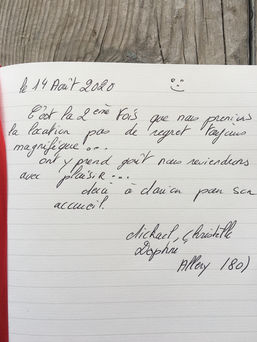 le 14 Août 2020
C'est la 2ème fois que nous prenions
la location pas de regret toujours
magnifique...
ont y prend goût nous reviendrons
avec plaisir...
à pour son
accueil.
Michael, Christelle
Daphné
Allery (80)